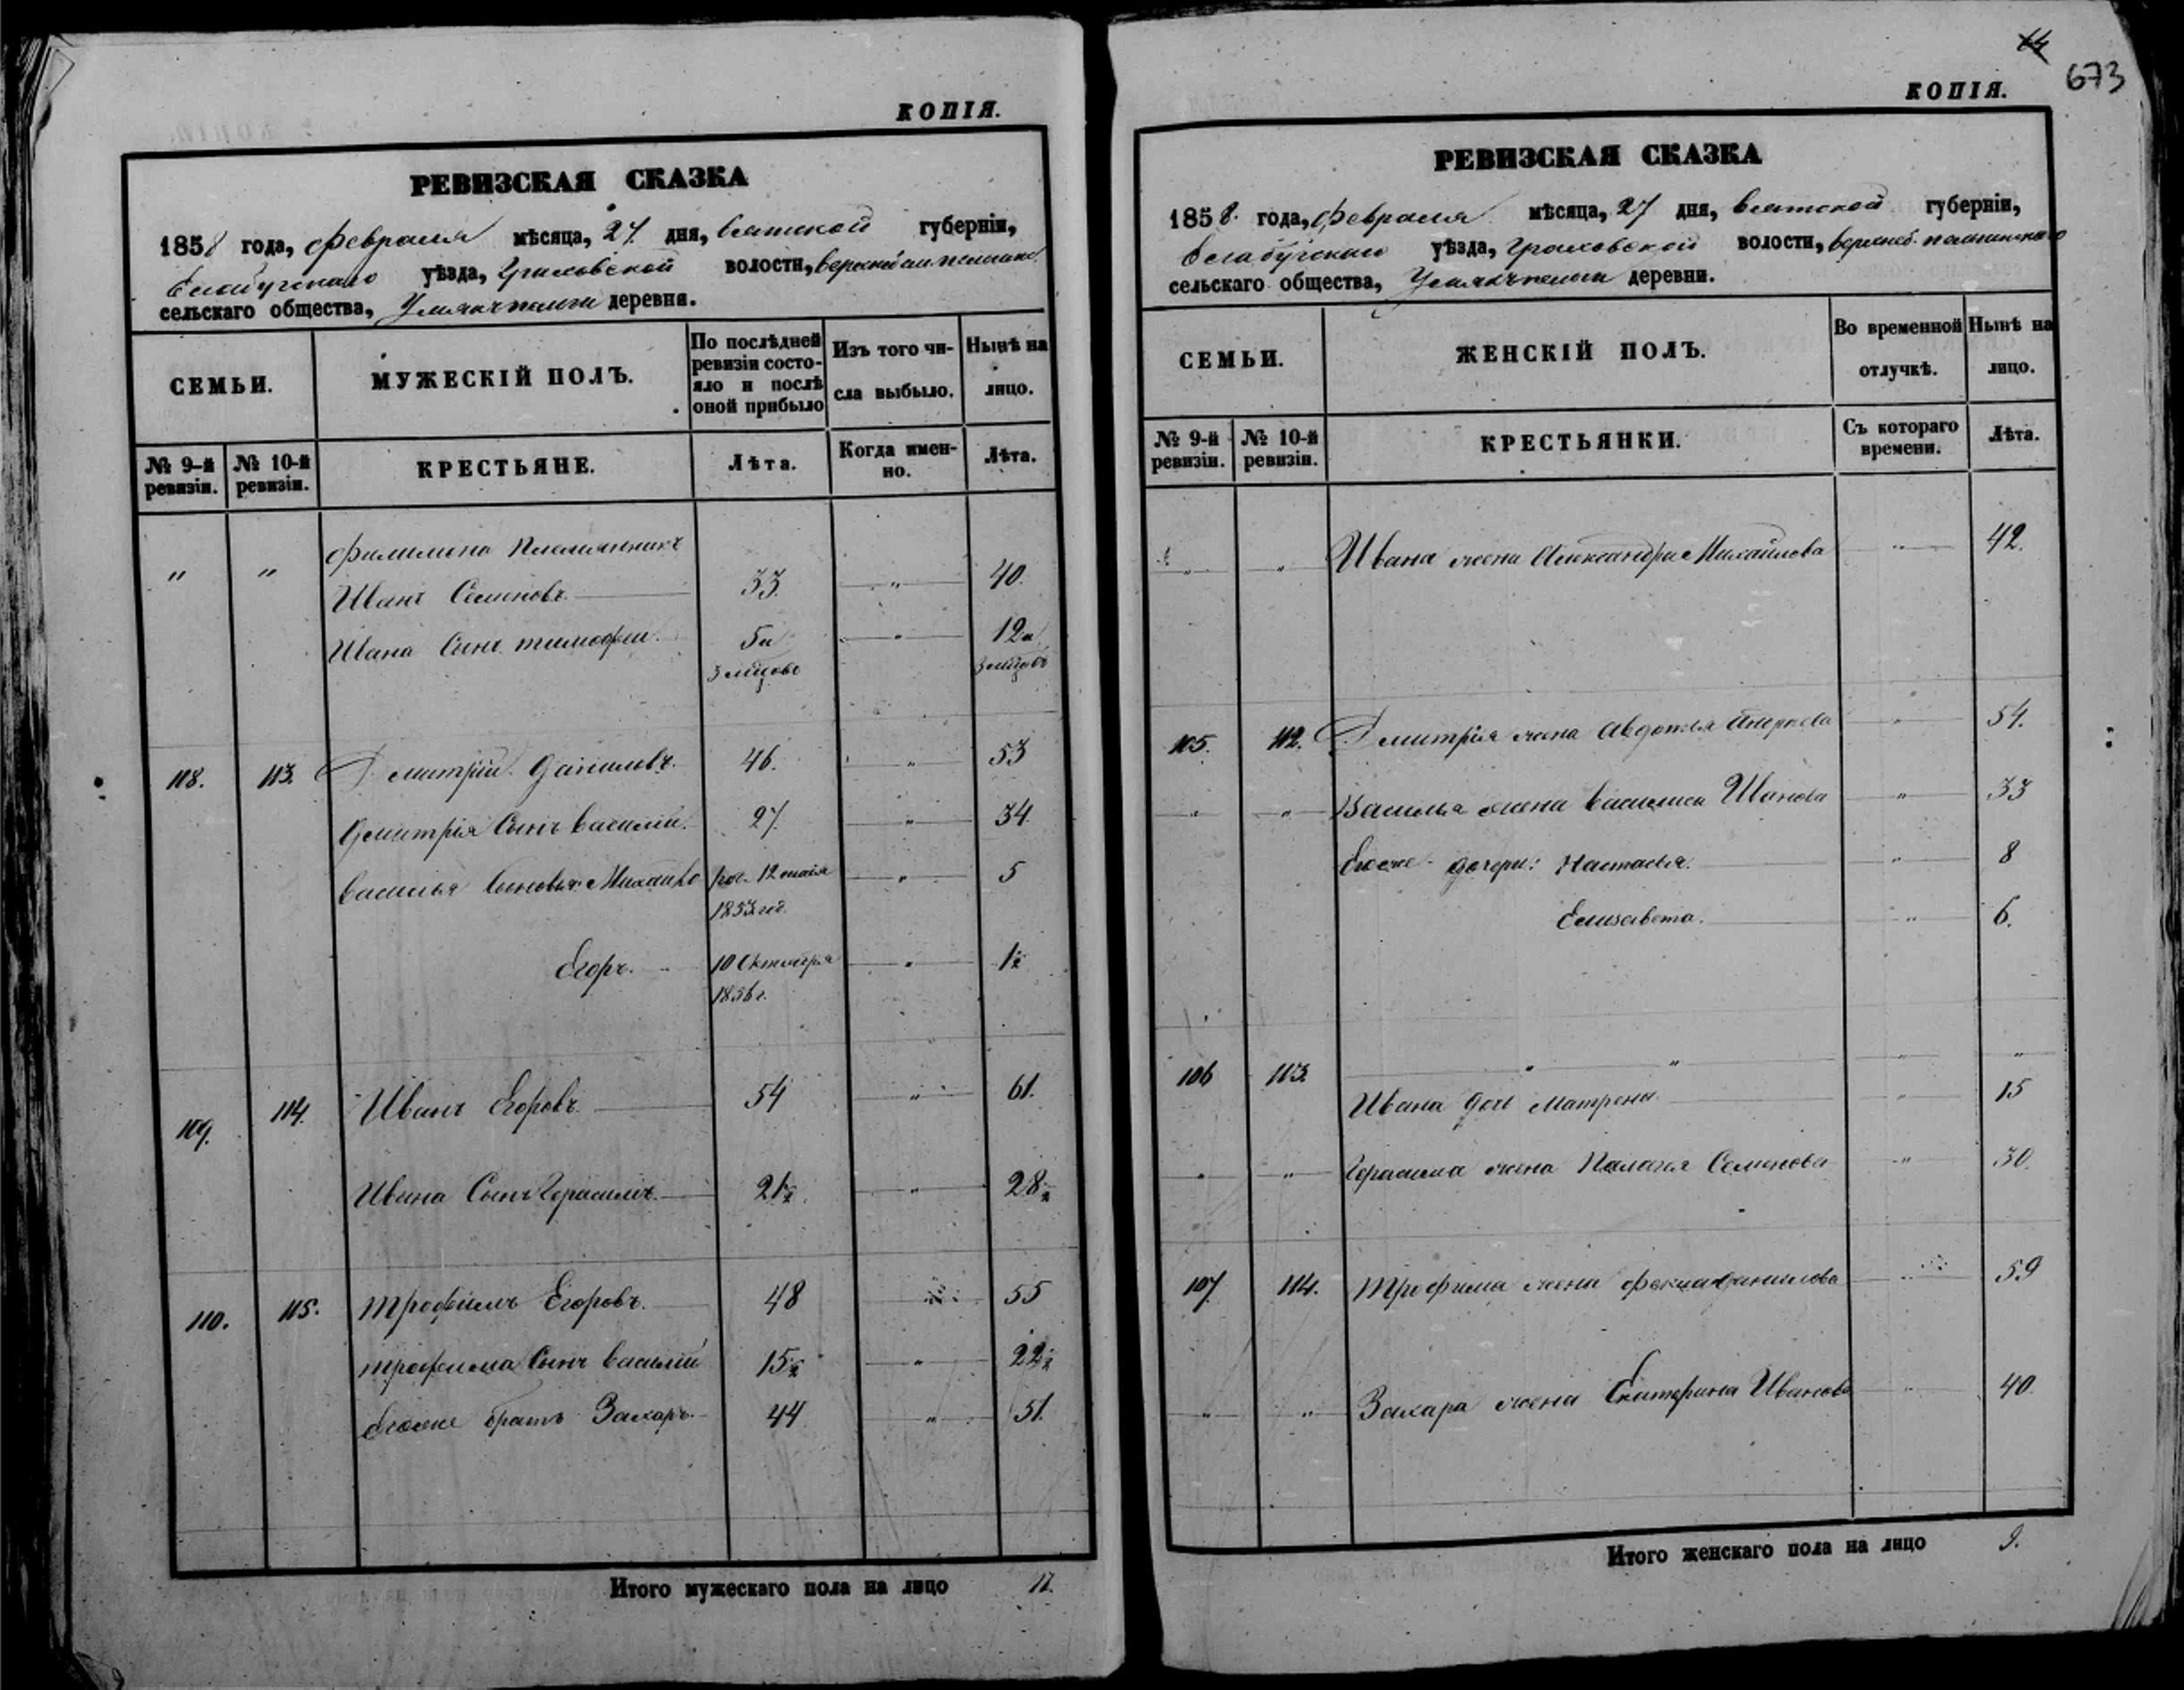 КОПІЯ.
РЕВИЗСКАЯ СКАЗКА
1858 года, февраля мѣсяца, 27 дня, вятской губерніи,
Елабугскаго уѣзда, Граховской волости,
сельскаго общества, деревня.
СЕМЬИ.
МУЖЕСКІЙ ПОЛЪ.
По послѣдней ревизіи состояло и послѣ оной прибыло
Изъ того числа выбыло.
Нынѣ на лицо.
№ 9-й ревизіи.
№ 10-й ревизіи.
КРЕСТЬЯНЕ.
Лѣта.
Когда именно.
Лѣта.
Филимона Племянникъ
" " Иванъ Семеновъ 33 " 40.
Ивана Сынъ тимофеи. 5и " 12и
3 мцовъ 3 мцовъ
118. 113. Дмитрій Даниловъ. 46. " 53
Дмитрія Сынъ Василій. 27. " 34
Василья Сыновья: Михайло рож. 12 маія " 5
1853 год.
Егоръ. 10 Октября " 1½
1856 г.
109. 114. Иванъ Егоровъ. 54 " 61.
Ивана Сынъ Герасимъ. 21½. " 28½
110. 115. Трофимъ Егоровъ. 48 55
трофима Сынъ Василій 15½ " 22½
Егоже братъ Захаръ. 44 " 51.
Итого мужескаго пола на лицо 11.
64
673
КОПІЯ.
РЕВИЗСКАЯ СКАЗКА
1858. года, Февраля мѣсяца, 27 дня, Вятской губерніи,
Елабугскаго уѣзда, Граховской волости,
сельскаго общества, деревни.
СЕМЬИ.
ЖЕНСКІЙ ПОЛЪ.
Во временной отлучкѣ.
Нынѣ на лицо.
№ 9-й ревизіи.
№ 10-й ревизіи.
КРЕСТЬЯНКИ.
Съ котораго времени.
Лѣта.
" " Ивана жена Александра Михайлова " 42.
105. 112. Дмитрія жена Авдотья " 54.
" " Василья жена Василиса Иванова " 33
Егоже дочери: Настасья. " 8
Елизавета. " 6.
106 113. " " " "
Ивана дочь Матрена " 15
" " Герасима жена Палагея Семенова " 30.
107 114. Трофима жена Фекла Данилова " 59
" " Захара жена Екатерина Иванова " 40.
Итого женскаго пола на лицо 9.